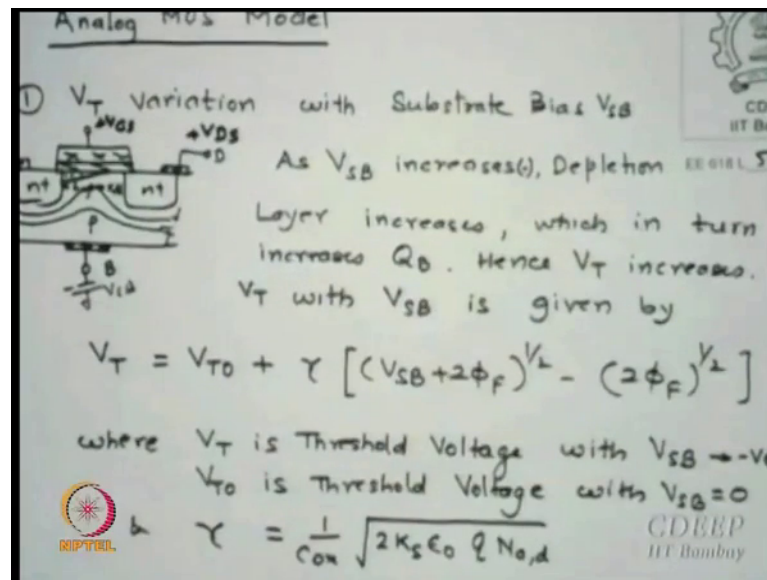 Analog MOS Model
① V_T Variation with Substrate Bias V_SB
VGS
VDS
D
n+
n+
P
B
As V_SB increases(-), Depletion
EE 618 L 5
Layer increases, which in turn
increases Q_B. Hence V_T increases.
V_T with V_SB is given by
V_T = V_T0 + γ [(V_SB + 2ϕ_F)^1/2 - (2ϕ_F)^1/2]
where V_T is Threshold Voltage with V_SB → -V
V_T0 is Threshold Voltage with V_SB = 0
& γ = 1/Cox √2 K_s ε_0 q N_a,d
NPTEL
CDEEP
IIT Bombay
CD
IIT B